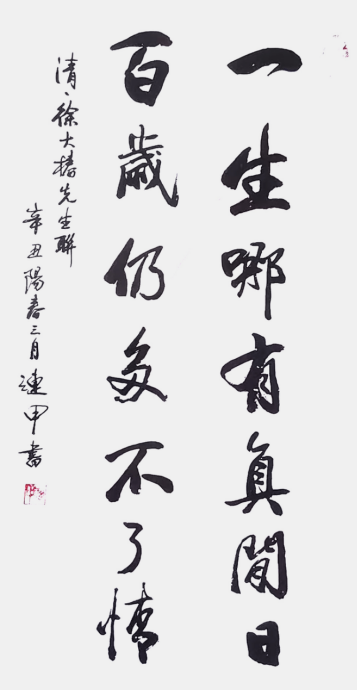 一生哪有真閒日
百歲仍多不了情
清、徐大椿先生聯
辛丑陽春三月連甲書